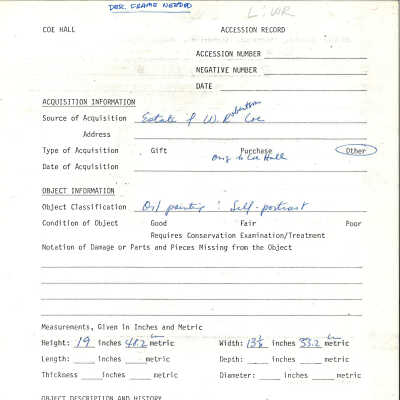 DOR FRAME NEEDED
L: WR
COE HALL ACCESSION RECORD
ACCESSION NUMBER
NEGATIVE NUMBER
DATE
ACQUISITION INFORMATION
Source of Acquisition Estate of W. Robertson Coe
Address
Type of Acquisition Gift Purchase Other
Orig to Coe Hall
Date of Acquisition
OBJECT INFORMATION
Object Classification Oil painting : Self-portrait
Condition of Object Good Fair Poor
Requires Conservation Examination/Treatment
Notation of Damage or Parts and Pieces Missing from the Object
Measurements, Given in Inches and Metric
Height: 19 inches 48.2 cm metric Width: inches 33.2 cm metric
Length: inches metric Depth: inches metric
Thickness inches metric Diameter: inches metric
OBJECT DESCRIPTION AND HISTORY